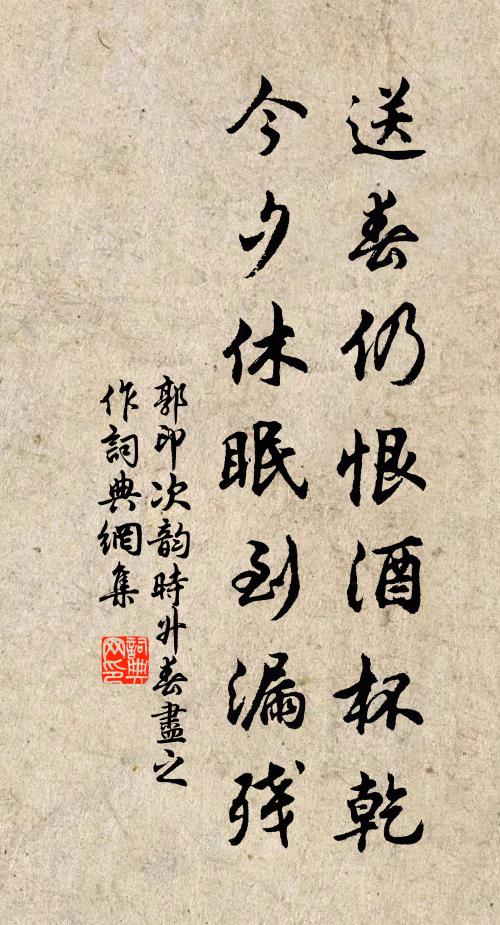 送春仍恨酒杯乾
今夕休眠到漏残
郭印次韵時升春盡之
作詞典網集
詞典
网印